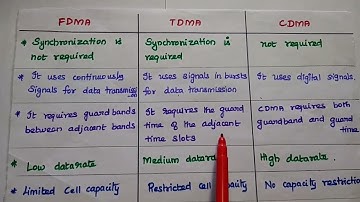 FDMA TDMA CDMA
* Synchronization is Synchronization is not required
not required required
* It uses continuously It uses signals in bursts It uses digital signals
signals for data transmission for data transmission
* It requires guard bands It requires the guard CDMA requires both
between adjacent bands time of the adjacent guardband and guard time
time slots
* Low datarate Medium datarate High datarate.
* Limited Cell capacity Restricted cell capacity No capacity restriction